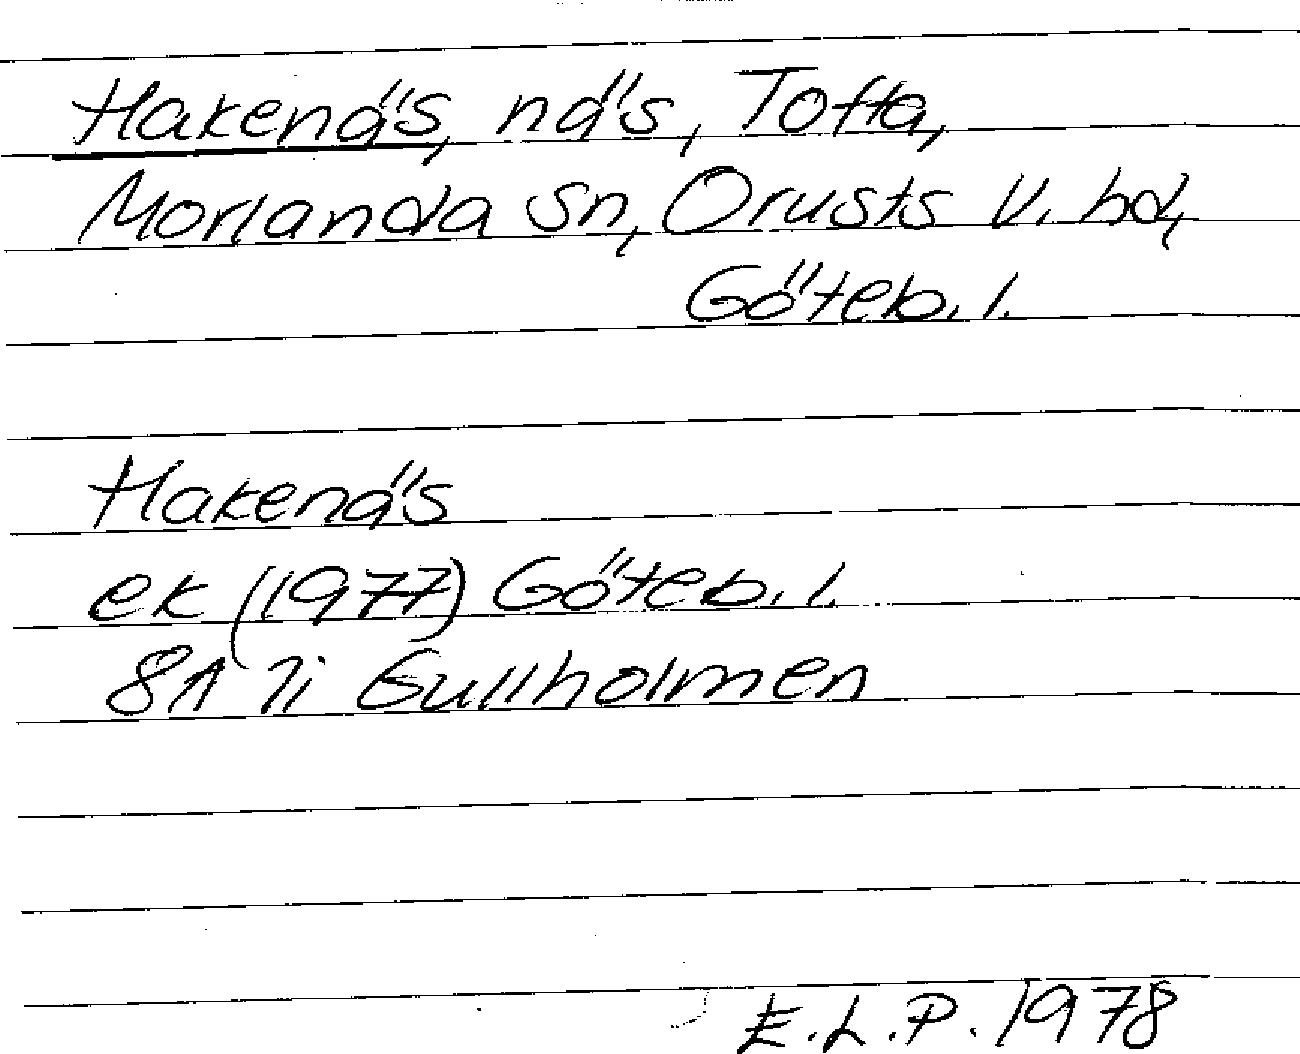 Hakenäs, näs, Tofta,
Morlanda sn, Orusts V. hd,
Göteb. l.
Hakenäs
ek (1977) Göteb. l.
8A 7i Gullholmen
E.L.P. 1978